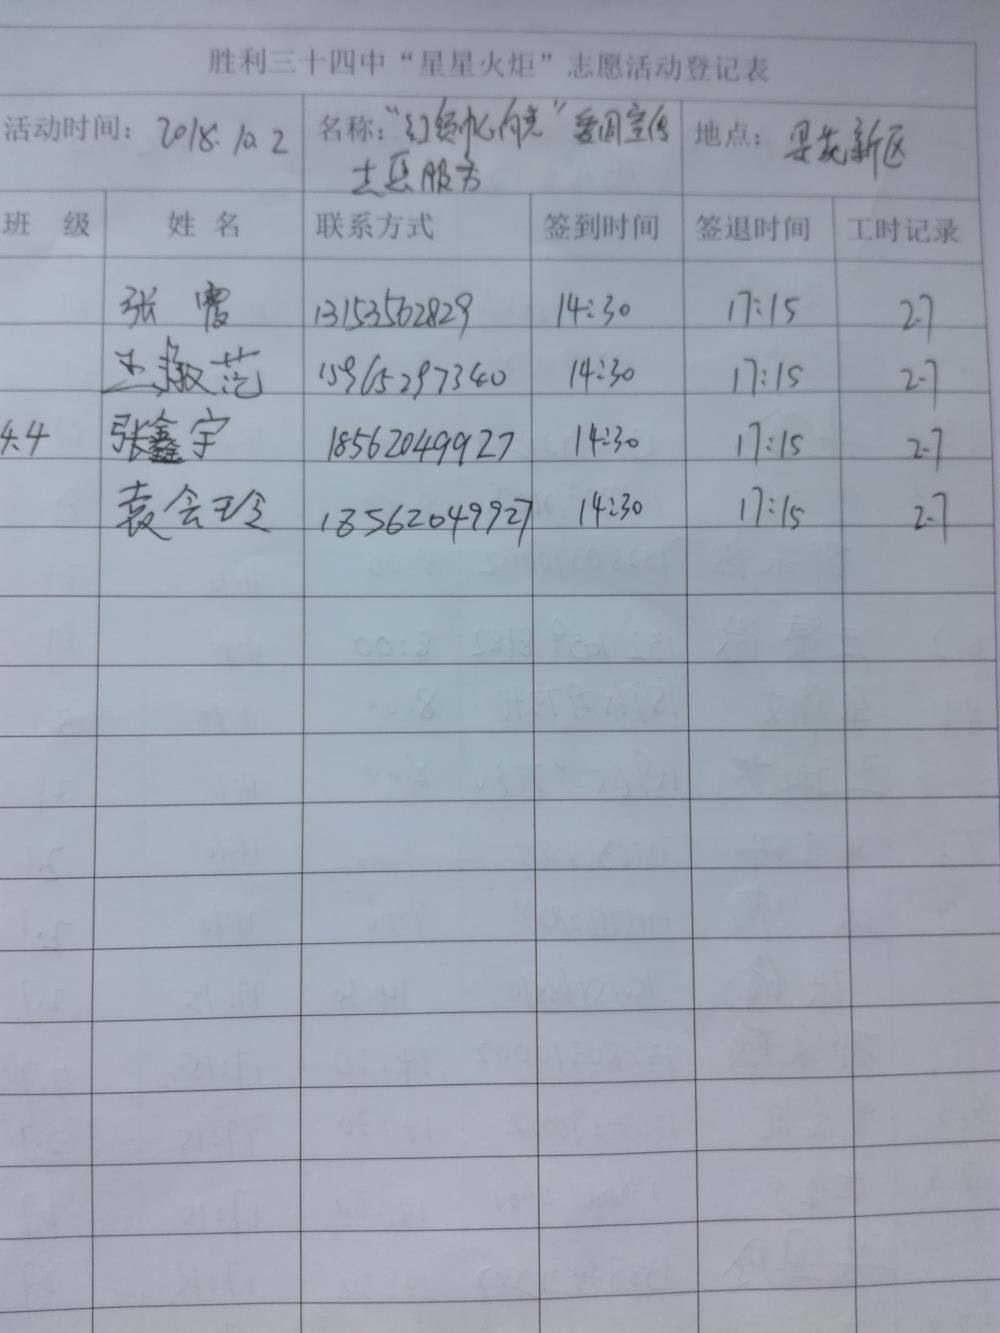 胜利三十四中“星星火炬”志愿活动登记表
活动时间: 2018.10.2 名称:“红领巾心向党”爱国宣传 地点: 景苑新区
志愿服务
班 级 姓 名 联系方式 签到时间 签退时间 工时记录
张 霞 13153562829 14:30 17:15 2.7
王淑范 15965297340 14:30 17:15 2.7
4.4 张鑫宇 18562049927 14:30 17:15 2.7
袁会玲 18562049927 14:30 17:15 2.7